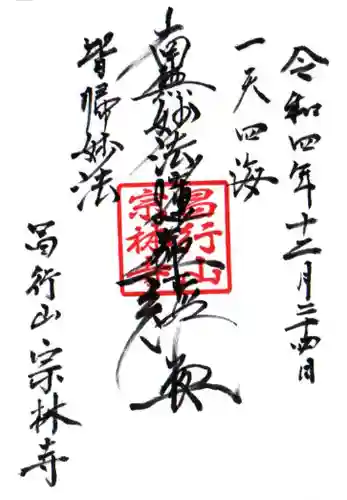 令和四年十二月二十四日
一天四海
南無妙法蓮華経
皆帰妙法
昌行山
宗林寺
昌行山宗林寺